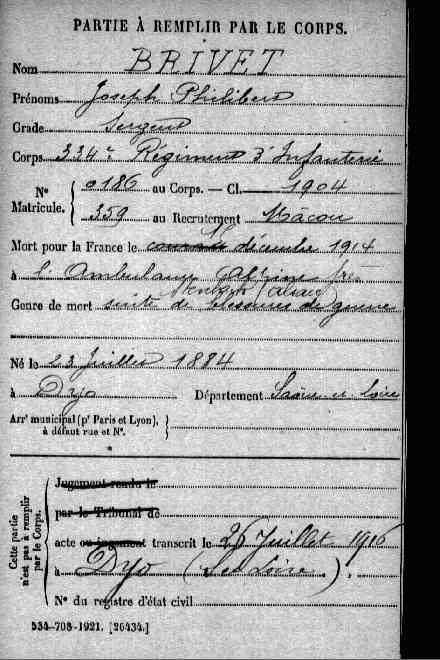 PARTIE À REMPLIR PAR LE CORPS.
Nom BRIVET
Prénoms Joseph Philibert
Grade Sergent
Corps 334e Régiment d'Infanterie
Nº Matricule. 0186 au Corps. — Cl. 1904
359 au Recrutement Mâcon
Mort pour la France le décembre 1914
à l'Ambulance
(Alsace)
Genre de mort suite de blessures de guerre
Né le 23 Juillet 1884
à Dyo Département Saône et Loire
Arrt municipal (pr Paris et Lyon), à défaut rue et Nº.
Cette partie n'est pas à remplir par le Corps.
Jugement rendu le
par le Tribunal de
acte ou jugement transcrit le 26 Juillet 1916
à Dyo (S et Loire)
Nº du registre d'état civil
534-708-1921. [26434.]